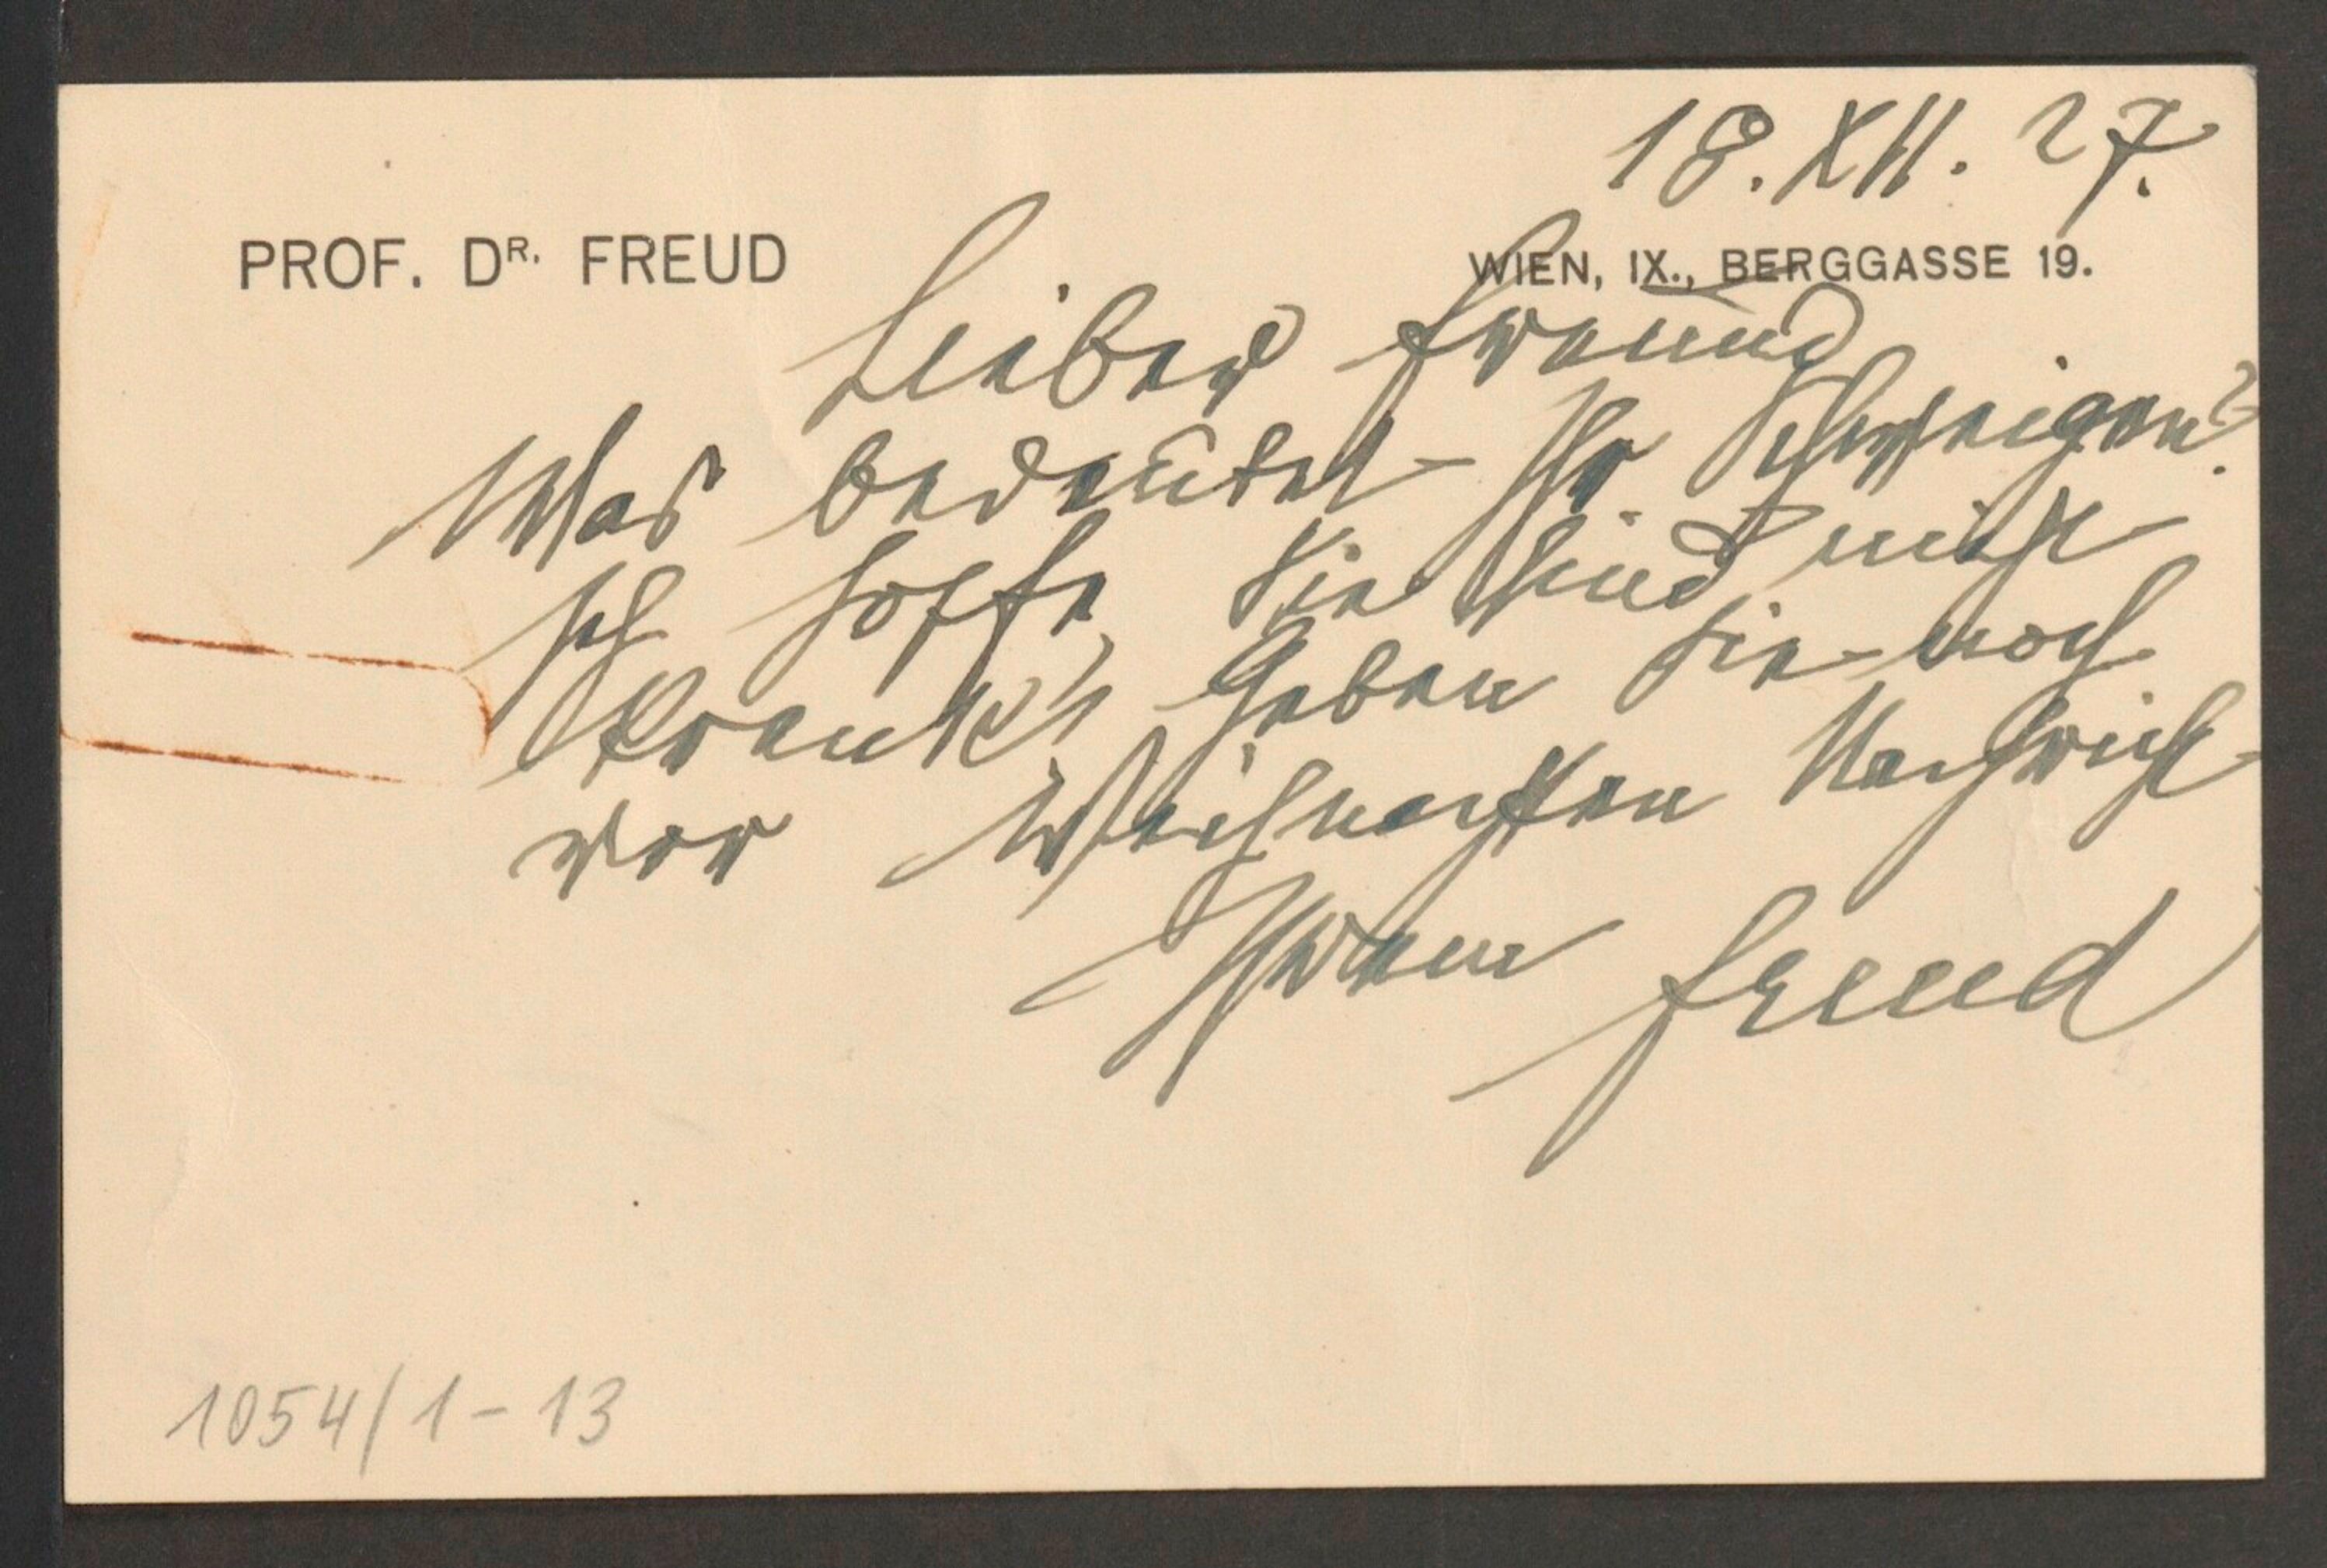 18. XII. 27.
PROF. DR. FREUD
WIEN, IX., BERGGASSE 19.
Lieber Freund
Was bedeutet Ihr Schweigen?
Ich hoffe, Sie sind nicht
krank. Geben Sie noch
vor Weihnachten Nachricht
Ihrem Freud
1054/1-13